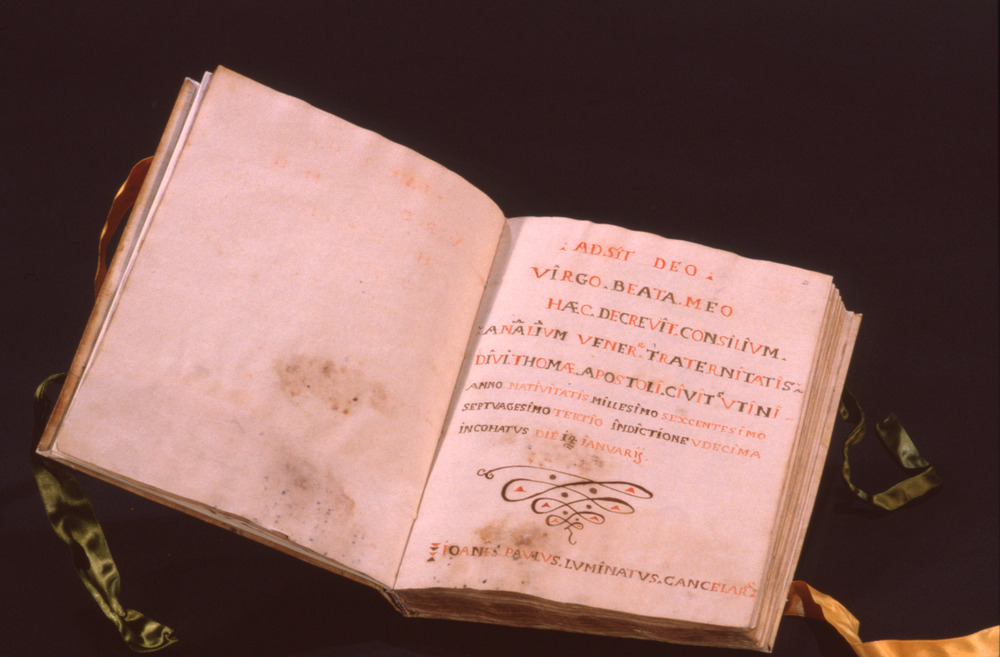 : AD.SIT DEO :
VIRGO.BEATA.MEO
HÆC.DECREVIT.CONSILIVM.
ANÃLIVM VENER. FRATERNITATIS
DIVI.THOMÆ.APOSTOLI.CIVIT UTINI
ANNO NATIVITATIS MILLESIMO SEXCENTESIMO
SEPTVAGESIMO TERTIO INDICTIONE VDECIMA
INCOHATVS DIE 19 IANVARIJ.
IOANES PAVLVS.LVMINATVS.CANCELARS